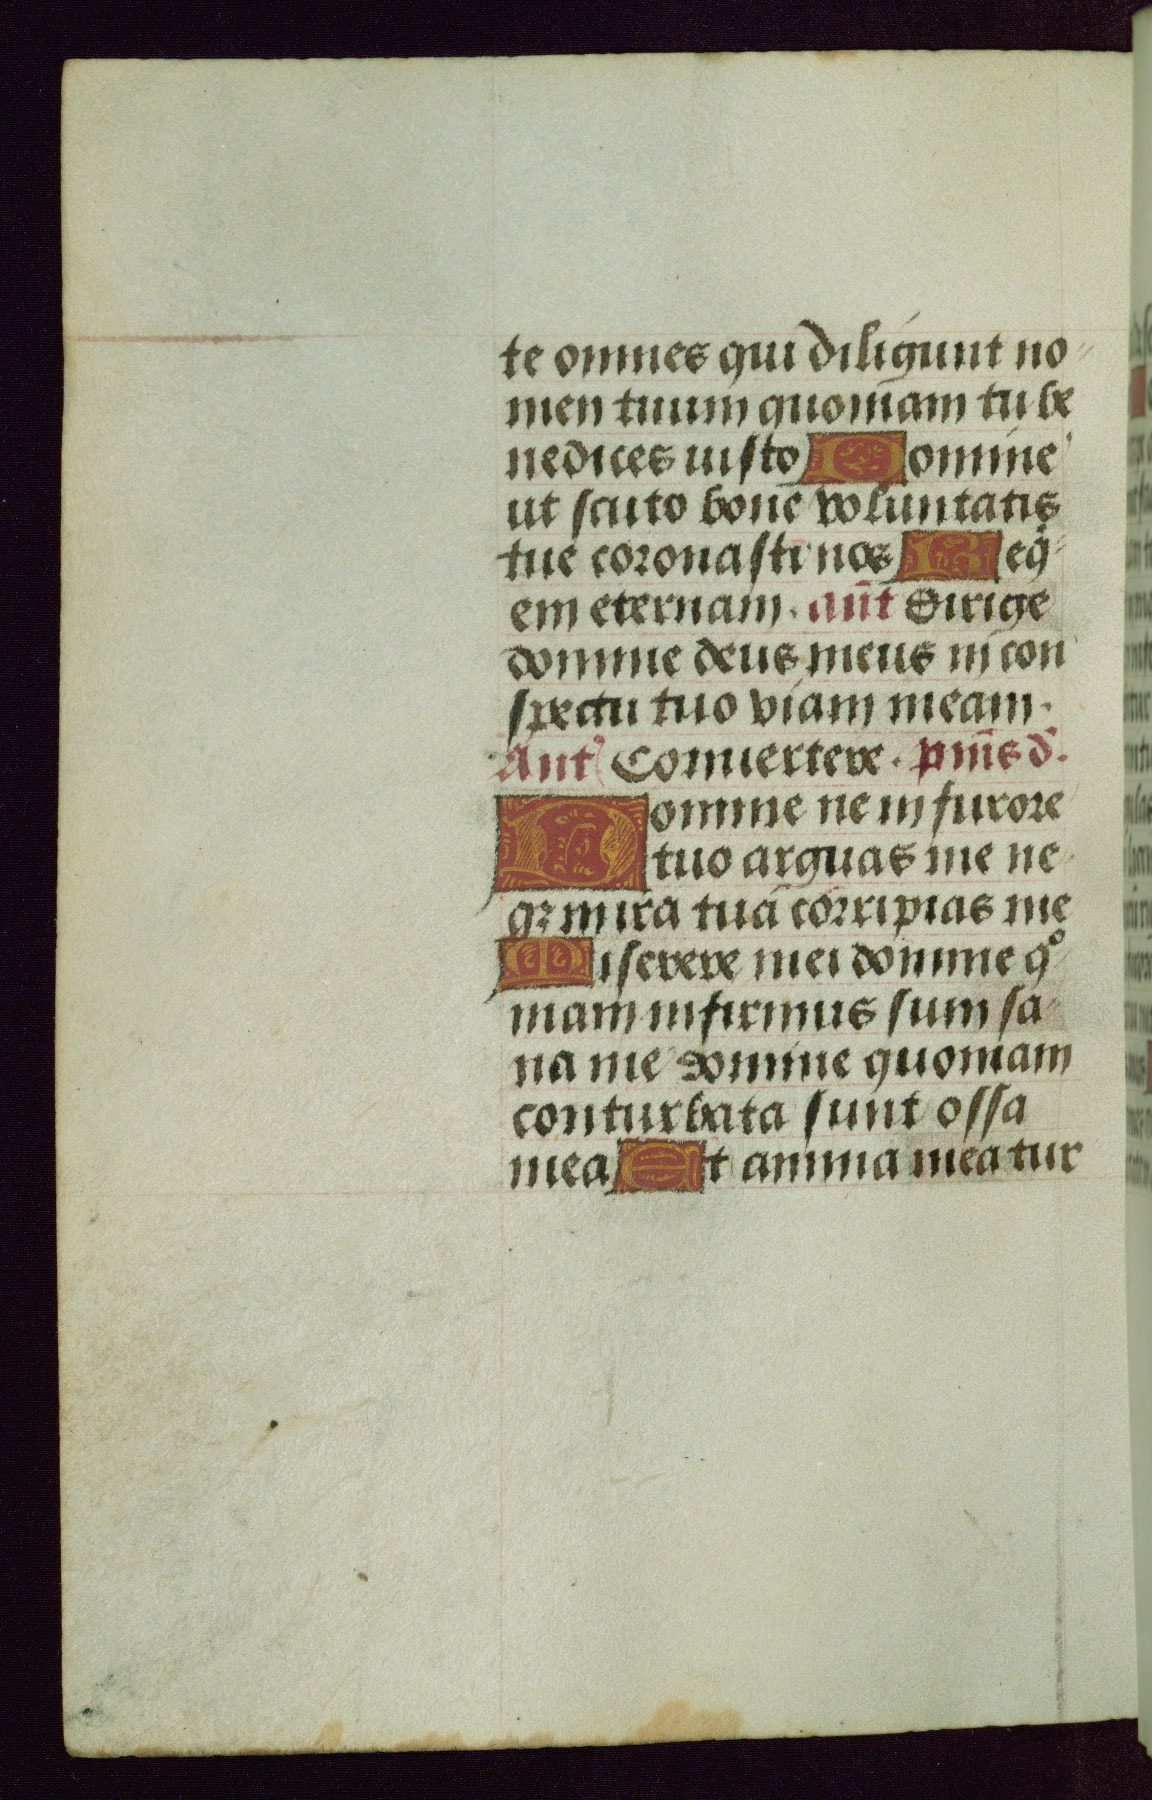 te omnes qui diligunt no-
men tuum quoniam tu be
nedices iusto Domine
ut scuto bone voluntatis
tue coronasti nos Req̄-
em eternam. an̄t Dirige
domine deus meus in con
spectu tuo viam meam.
Ant' Conuertere. p̄m̄s d̄.
Domine ne in furore
tuo arguas me ne-
qꝫ in ira tuā corripias me
Miserere mei domine qͦ-
niam infirmus sum sa-
na me domine quoniam
conturbata sunt ossa
mea Et anima mea tur